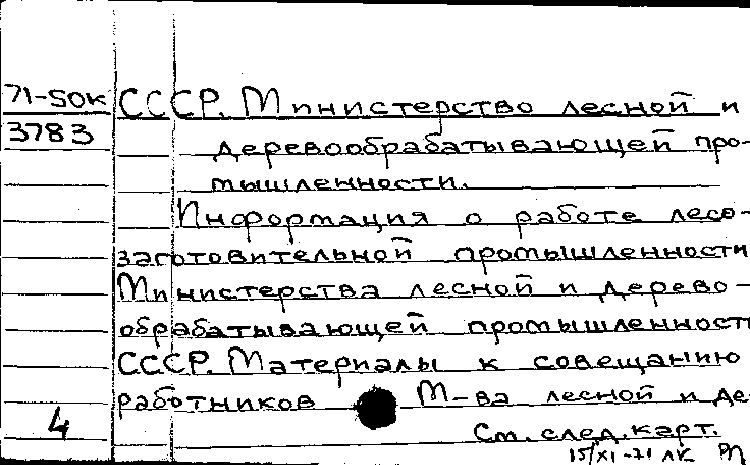 71-50к СССР. Министерство лесной и
3783 деревообрабатывающей про-
мышленности.
Информация о работе лесо-
заготовительной промышленности
Министерства лесной и дерево-
обрабатывающей промышленност
СССР. Материалы к совещанию
работников М-ва лесной и де
4 См. след. карт.
15/XI-71 ЛК